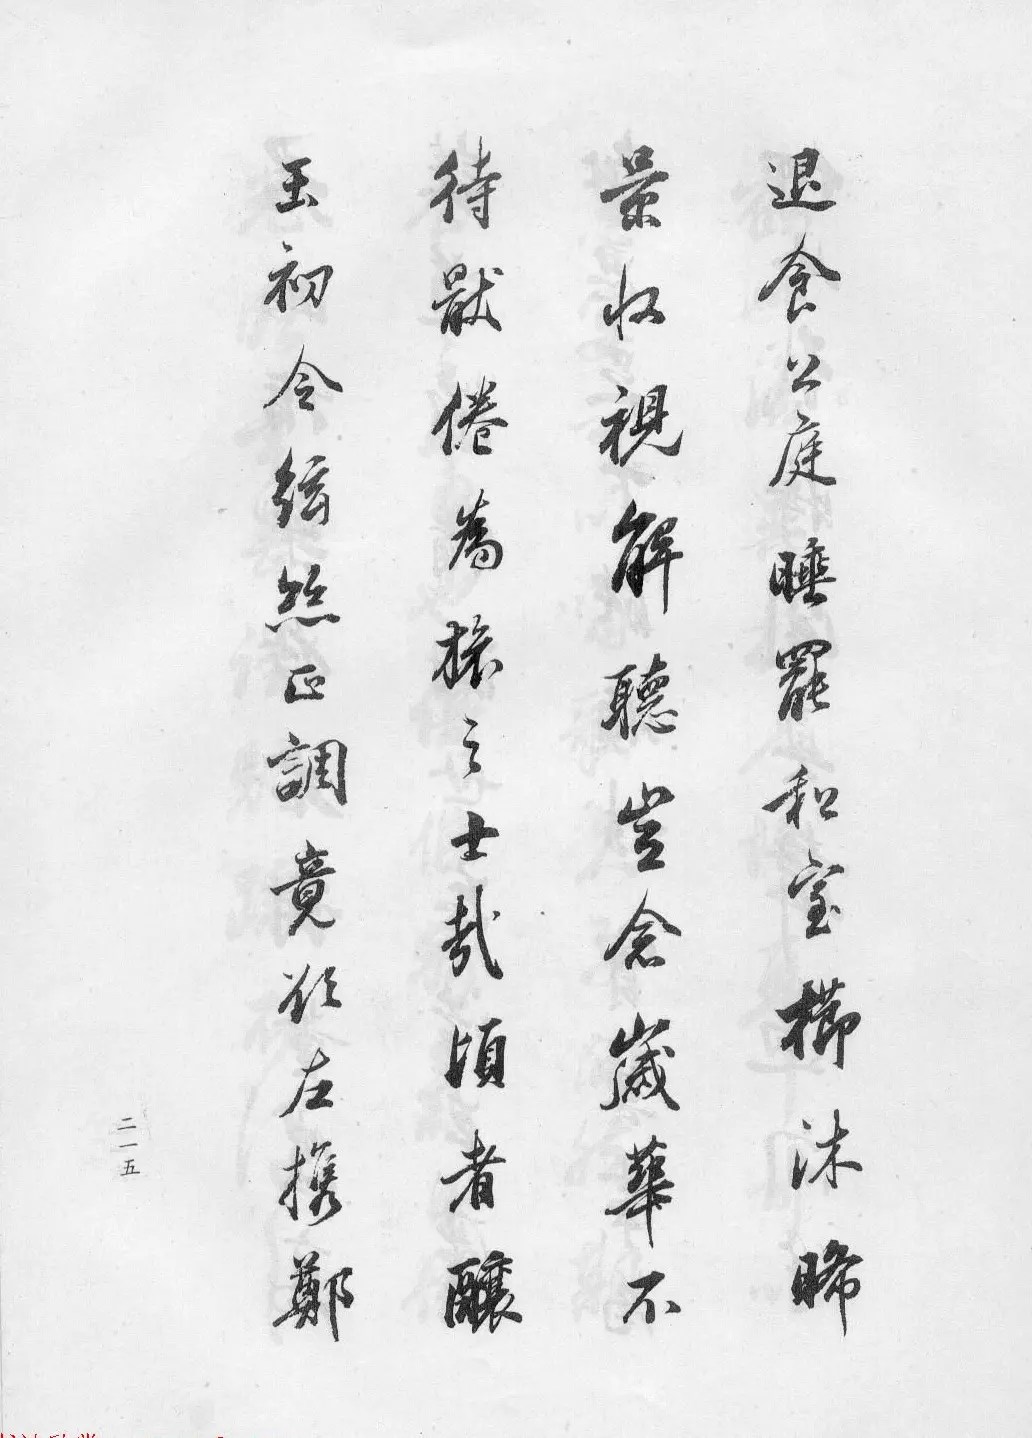 退食公庭睡罷和室櫛沐晞
景收視解聽豈念歲華不
待厭倦為振之士哉頃者釀
玉初令絃然正調竟欲左攜鄭
二一五